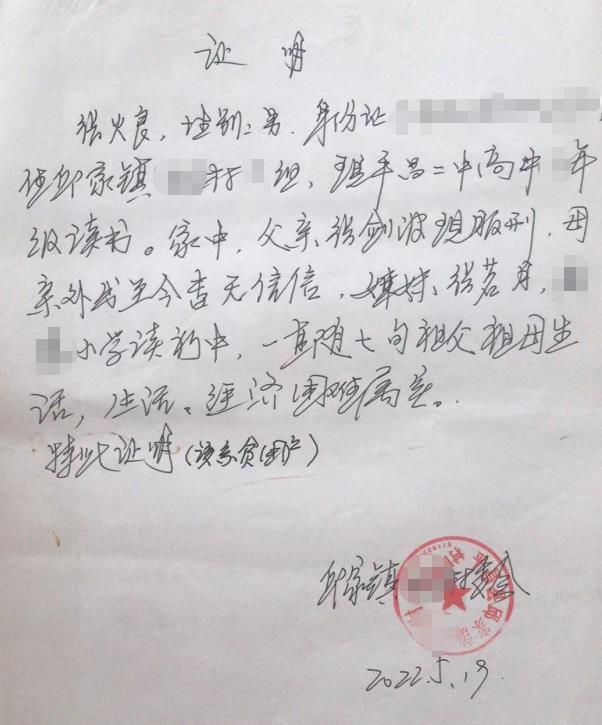 证 明
张火良，性别：男．身份证
住邱家镇 村 组，现平昌二中高中 年
级读书。家中，父亲张剑波现服刑．母
亲外出至今杳无信信、妹妹、张茗月，
小学读初中，一直随七旬祖父祖母生
活，生活、经济困难属实。
特此证明（该系贫困户）
邱家镇 村委会
2022.5.19.